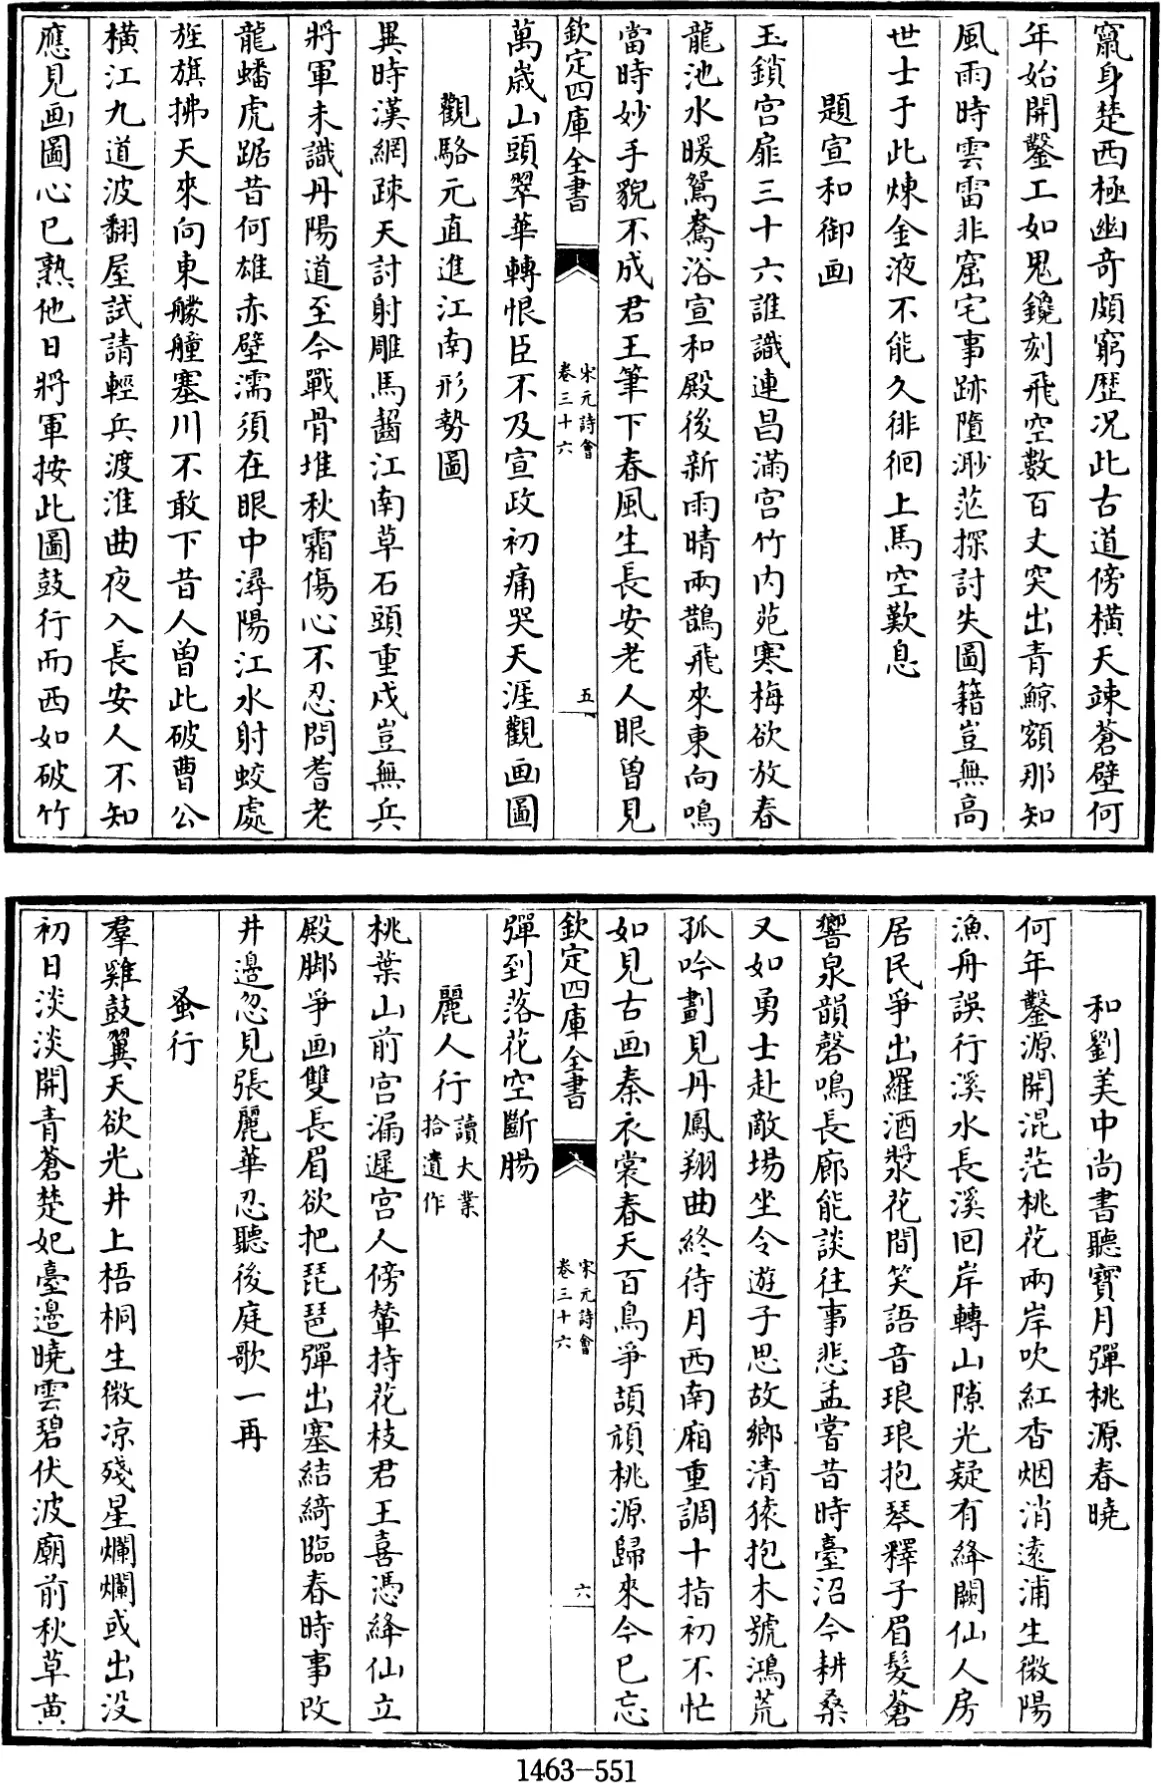 竄身楚西極幽奇頗窮歴况此古道傍横天竦蒼壁何
年始開鑿工如鬼鑱刻飛空數百丈突出青鯨額那知
風雨時雲雷非窟宅事跡墮渺茫探討失圖籍豈無高
世士于此煉金液不能久徘徊上馬空歎息
題宣和御画
玉鎖宫扉三十六誰識連昌滿宫竹内苑寒梅欲放春
龍池水暖鴛鴦浴宣和殿後新雨晴兩鵲飛來東向鳴
當時妙手貌不成君王筆下春風生長安老人眼曾見
欽定四庫全書
宋元詩會
卷三十六
五
萬歲山頭翠華轉恨臣不及宣政初痛哭天涯觀画圖
觀駱元直進江南形勢圖
異時漢網疎天討射雕馬齧江南草石頭重戍豈無兵
將軍未識丹陽道至今戰骨堆秋霜傷心不忍問耆老
龍蟠虎踞昔何雄赤壁濡須在眼中潯陽江水射蛟處
旌旗拂天來向東艨艟塞川不敢下昔人曽此破曹公
横江九道波翻屋試請輕兵渡淮曲夜入長安人不知
應見画圖心已熟他日將軍按此圖鼓行而西如破竹
和劉美中尚書聽寶月彈桃源春曉
何年鑿源開混茫桃花兩岸吹紅香烟消遠浦生微陽
漁舟誤行溪水長溪回岸轉山隙光疑有絳闕仙人房
居民爭出羅酒漿花間笑語音琅琅抱琴釋子眉髮蒼
響泉韻磬鳴長廊能談往事悲孟嘗昔時臺沼今耕桑
又如勇士赴敵場坐令遊子思故鄉清猿抱木號鴻荒
孤吟劃見丹鳳翔曲終待月西南廂重調十指初不忙
如見古画秦衣裳春天百鳥爭頡頏桃源歸來今已忘
欽定四庫全書
宋元詩會
卷三十六
六
彈到落花空斷腸
麗人行讀大業拾遺作
桃葉山前宫漏遲宫人傍輦持花枝君王喜憑絳仙立
殿脚爭画雙長眉欲把琵琶彈出塞結綺臨春時事改
井邉忽見張麗華忍聽後庭歌一再
蚤行
羣雞鼓翼天欲光井上梧桐生微凉殘星爛爛或出没
初日淡淡開青蒼楚妃臺邉曉雲碧伏波廟前秋草黄
1463-551